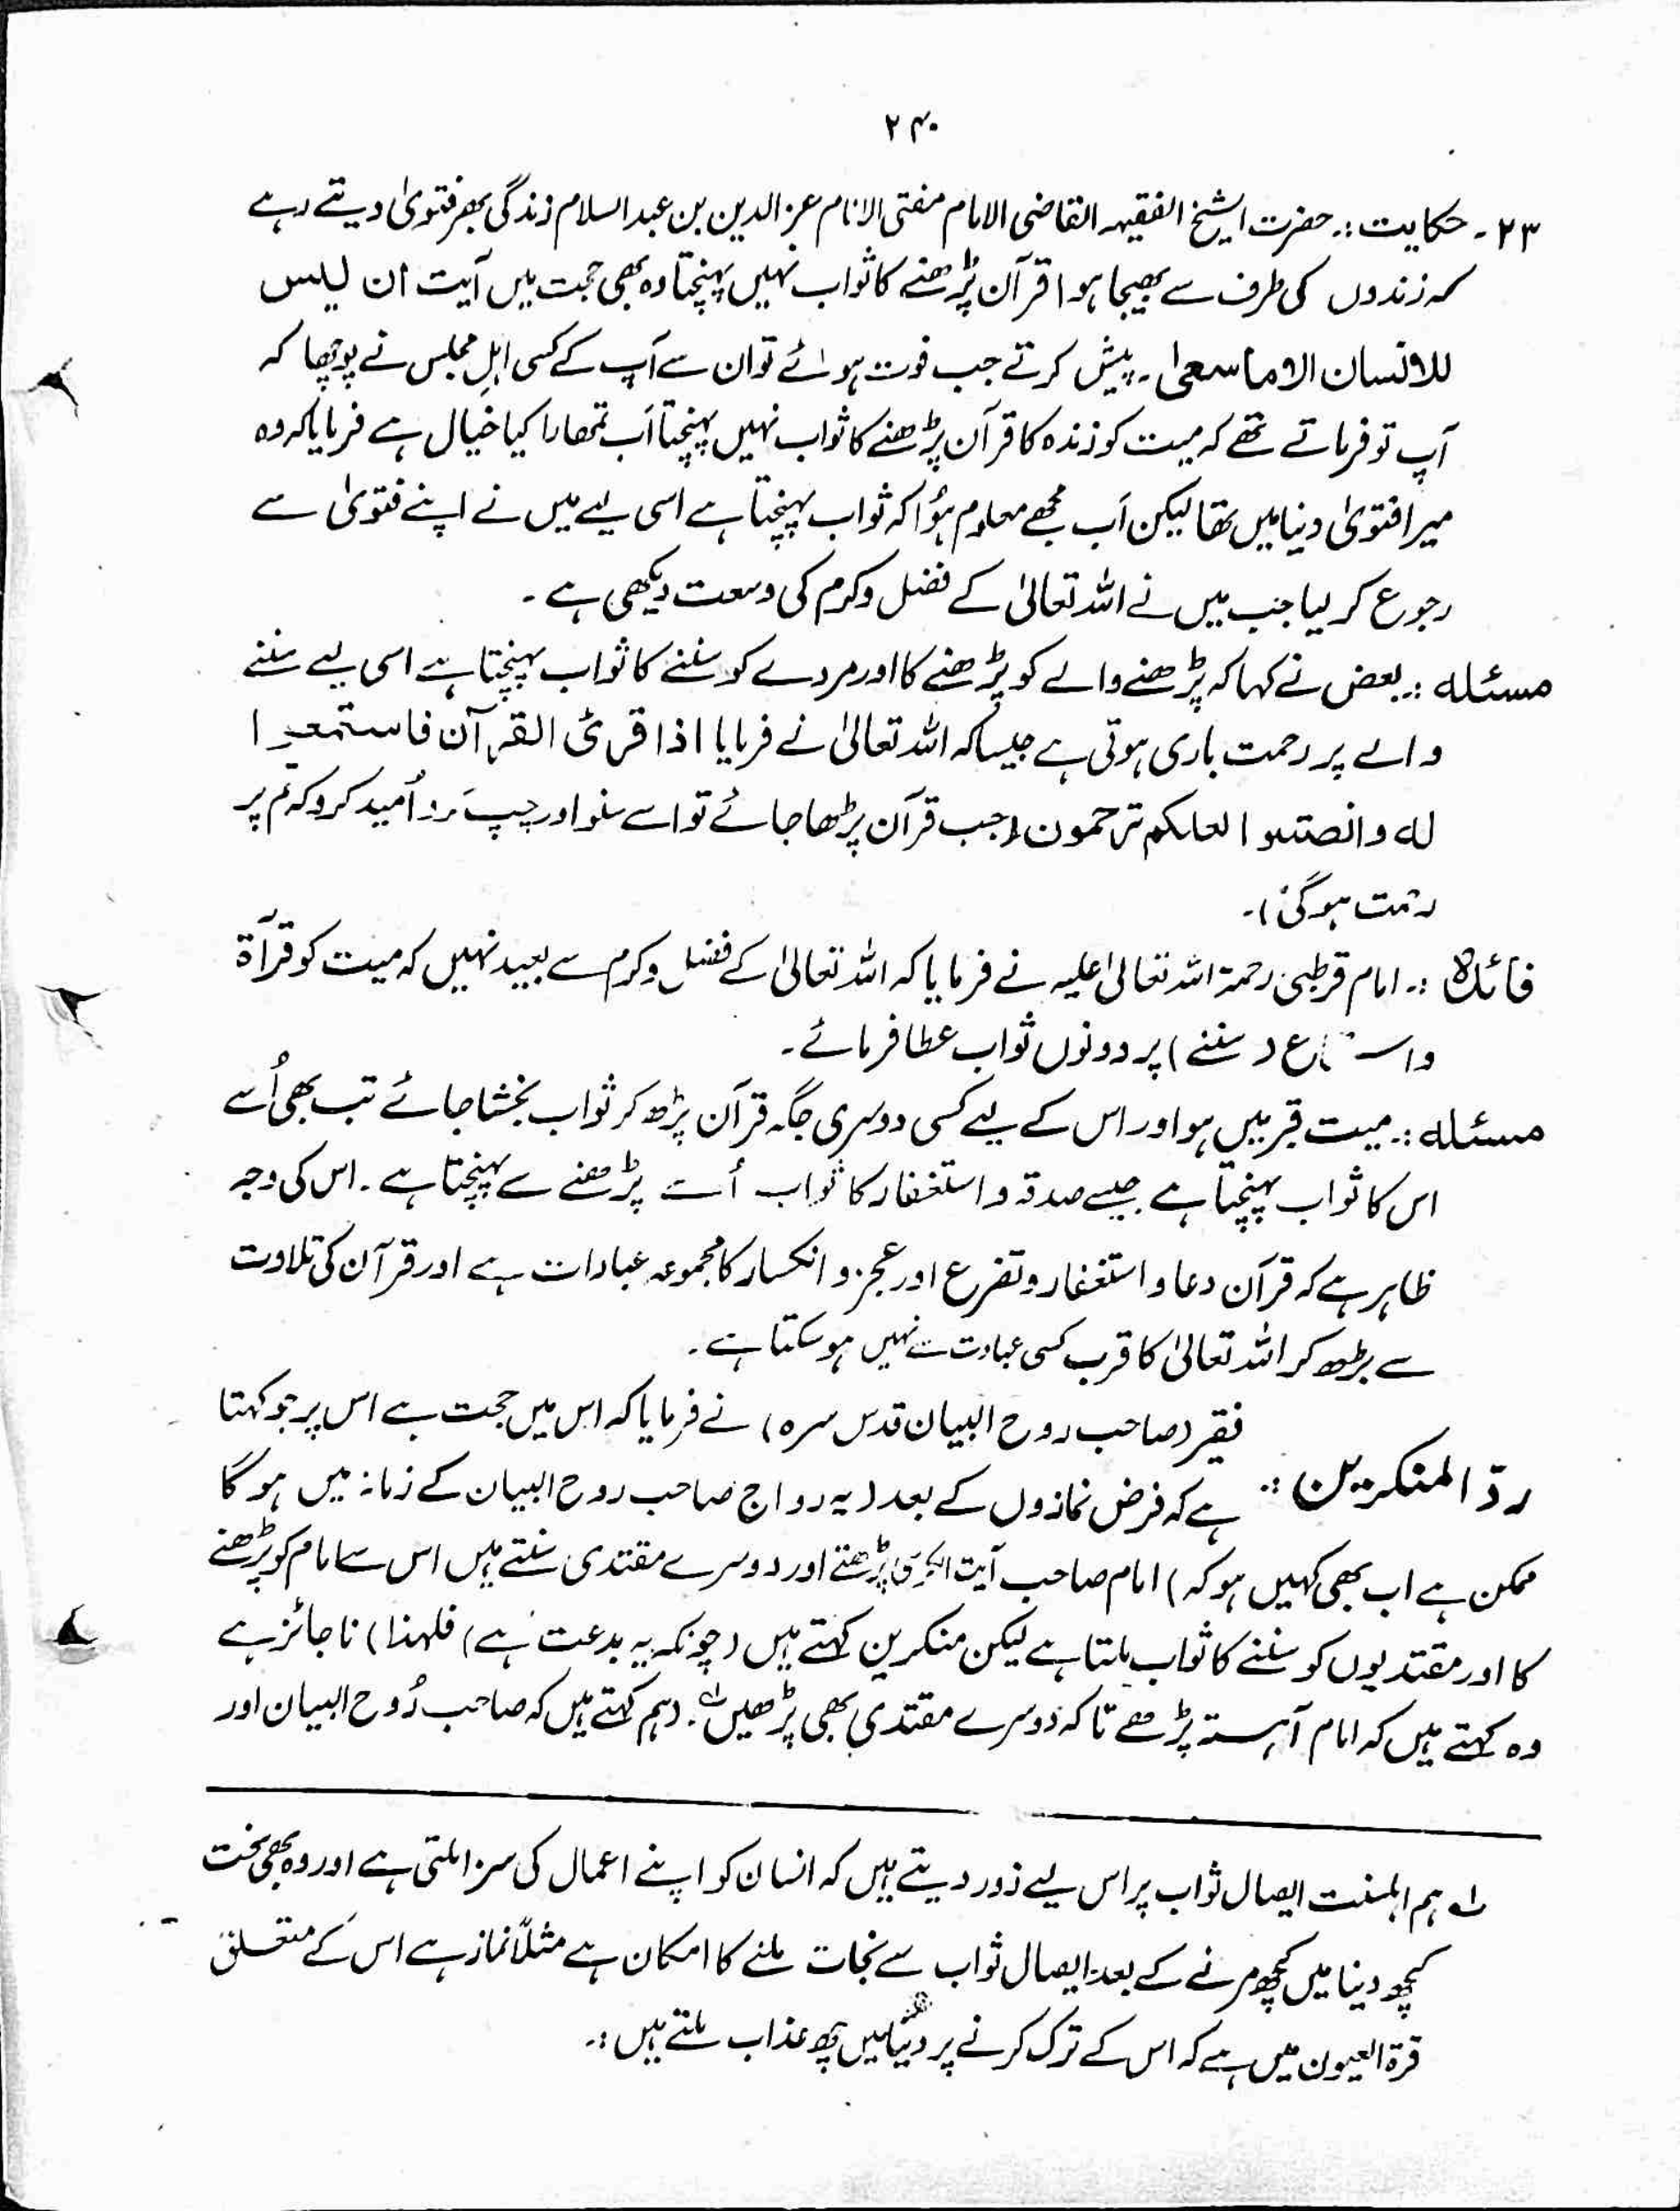 ۲۴۰
۲۳ ۔ حکایت :۔ حضرت الشیخ الفقیہہ القاضی الامام مفتی الانام عز الدین بن عبد السلام زندگی بھر فتویٰ دیتے رہے
کہ زندوں کی طرف سے بھیجا ہوا قرآن پڑھنے کا ثواب نہیں پہنچتا وہ بھی حجت میں آیت ان لیس
للانسان الا ما سعیٰ ۔ پیش کرتے جب فوت ہوئے تو ان سے آپ کے کسی اہلِ مجلس نے پوچھا کہ
آپ تو فرماتے تھے کہ میت کو زندہ کا قرآن پڑھنے کا ثواب نہیں پہنچتا اَب تمھارا کیا خیال ہے فرمایا کہ وہ
میرا فتویٰ دنیا میں تھا لیکن اَب مجھے معلوم ہؤا کہ ثواب پہنچتا ہے اسی لیے میں نے اپنے فتویٰ سے
رجوع کر لیا جب میں نے اللہ تعالیٰ کے فضل و کرم کی وسعت دیکھی ہے ۔
مسئلہ :۔ بعض نے کہا کہ پڑھنے والے کو پڑھنے کا اور مردے کو سننے کا ثواب پہنچتا ہے اسی لیے سننے
والے پر رحمت باری ہوتی ہے جیسا کہ اللہ تعالیٰ نے فرمایا اذا قرئ القرآن فاستمعوا
لہ وانصتوا لعلکم ترحمون (جب قرآن پڑھا جائے تو اسے سنو اور چپ رہو اُمید کرو کہ تم پر
رحمت ہوگی) ۔
فائدہ :۔ امام قرطبی رحمۃ اللہ تعالیٰ علیہ نے فرمایا کہ اللہ تعالیٰ کے فضل و کرم سے بعید نہیں کہ میت کو قرآۃ
(سننے) پر دونوں ثواب عطا فرمائے ۔
مسئلہ :۔ میت قبر میں ہو اور اس کے لیے کسی دوسری جگہ قرآن پڑھ کر ثواب بخشا جائے تب بھی اُسے
اس کا ثواب پہنچتا ہے جیسے صدقہ و استغفار کا ثواب اُسے پڑھنے سے پہنچتا ہے ۔ اس کی وجہ
ظاہر ہے کہ قرآن دعا و استغفار و تضرع اور عجز و انکسار کا مجموعہ عبادات ہے اور قرآن کی تلاوت
سے بڑھ کر اللہ تعالیٰ کا قرب کسی عبادت سے نہیں ہو سکتا ہے ۔
فقیر (صاحب روح البیان قدس سرہ) نے فرمایا کہ اس میں حجت ہے اس پر جو کہتا
ردّ المنکرین :۔ ہے کہ فرض نمازوں کے بعد (یہ رواج صاحب روح البیان کے زمانہ میں ہو گا
ممکن ہے اب بھی کہیں ہو کہ) امام صاحب آیت الکرسی پڑھتے اور دوسرے مقتدی سنتے ہیں اس سے امام کو پڑھنے
کا اور مقتدیوں کو سننے کا ثواب ملتا ہے لیکن منکرین کہتے ہیں (چونکہ یہ بدعت ہے) فلہذا) ناجائز ہے
وہ کہتے ہیں کہ امام آہستہ پڑھے تاکہ دوسرے مقتدی بھی پڑھیں ۔ (ہم کہتے ہیں کہ صاحب رُوح البیان اور
ہم اہلسنت ایصال ثواب پر اس لیے زور دیتے ہیں کہ انسان کو اپنے اعمال کی سزا ملتی ہے اور وہ بھی سخت
کچھ دنیا میں کچھ مرنے کے بعد ایصال ثواب سے نجات ملنے کا امکان ہے مثلاً نماز ہے اس کے متعلق
قرۃ العیون میں ہے کہ اس کے ترک کرنے پر دنیا میں چھ عذاب ملتے ہیں :۔